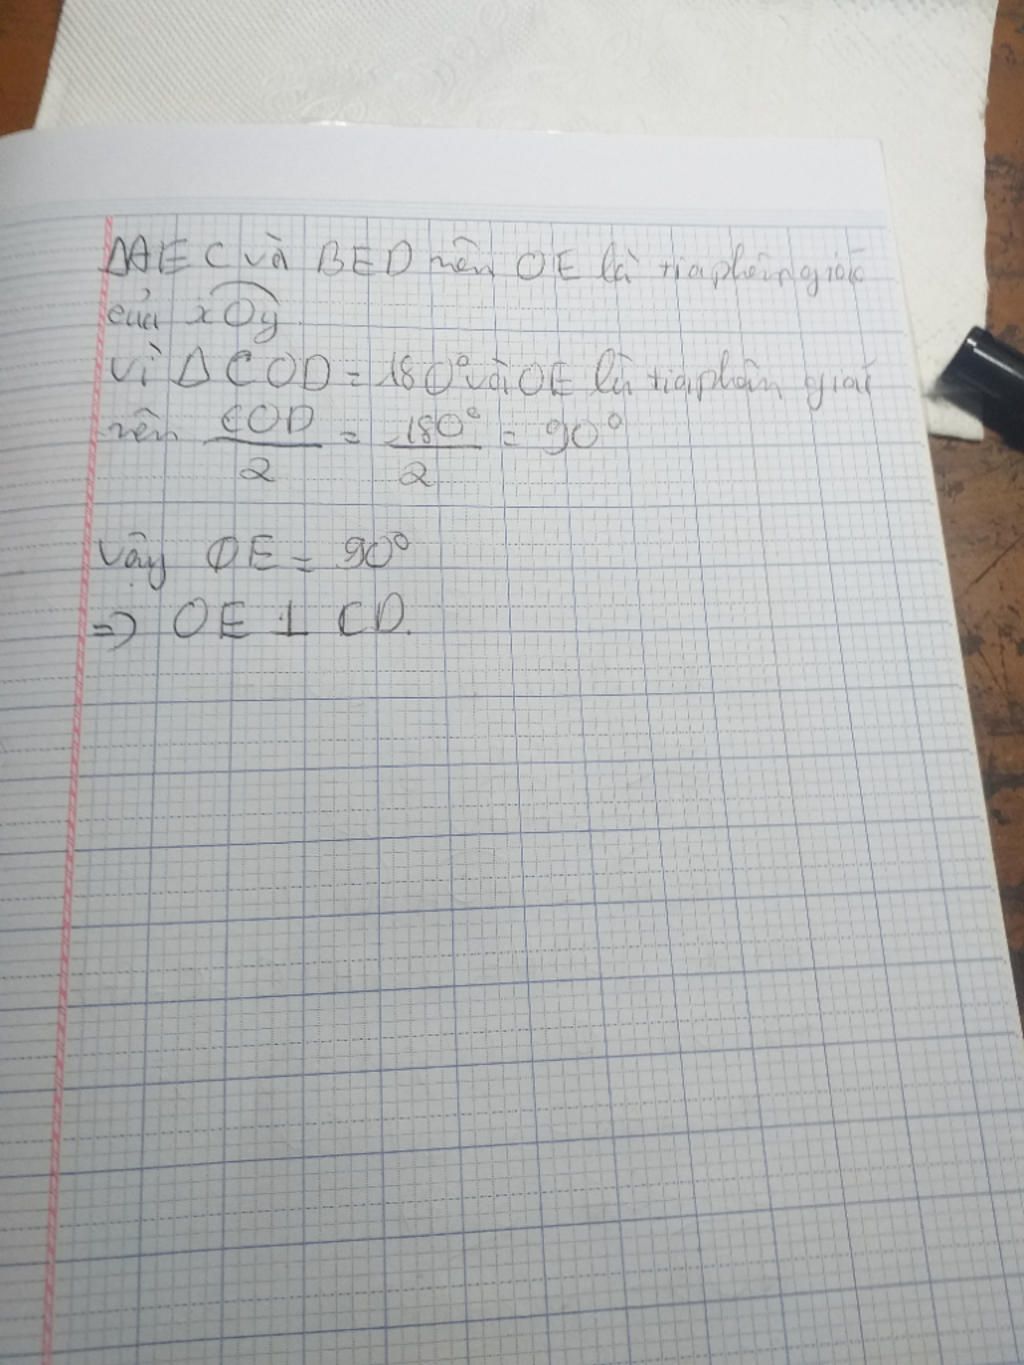 ΔAEC và BED nên OE là tia phân giác
của xOy
Vì Δ COD = 180° và OE là tia phân giác
nên COD/2 = 180°/2 = 90°
Vậy OE = 90°
=> OE ⊥ CD.